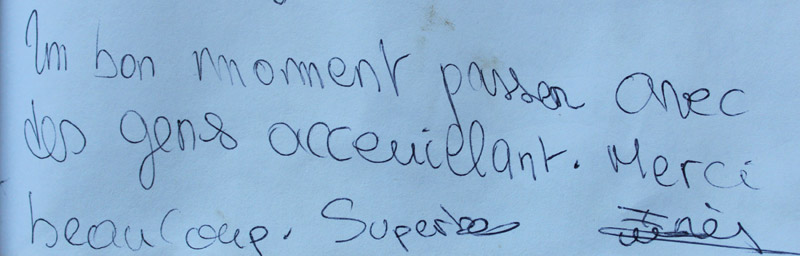 Un bon moment passer avec
des gens acceuillant. Merci
beaucoup. Superbe Inès